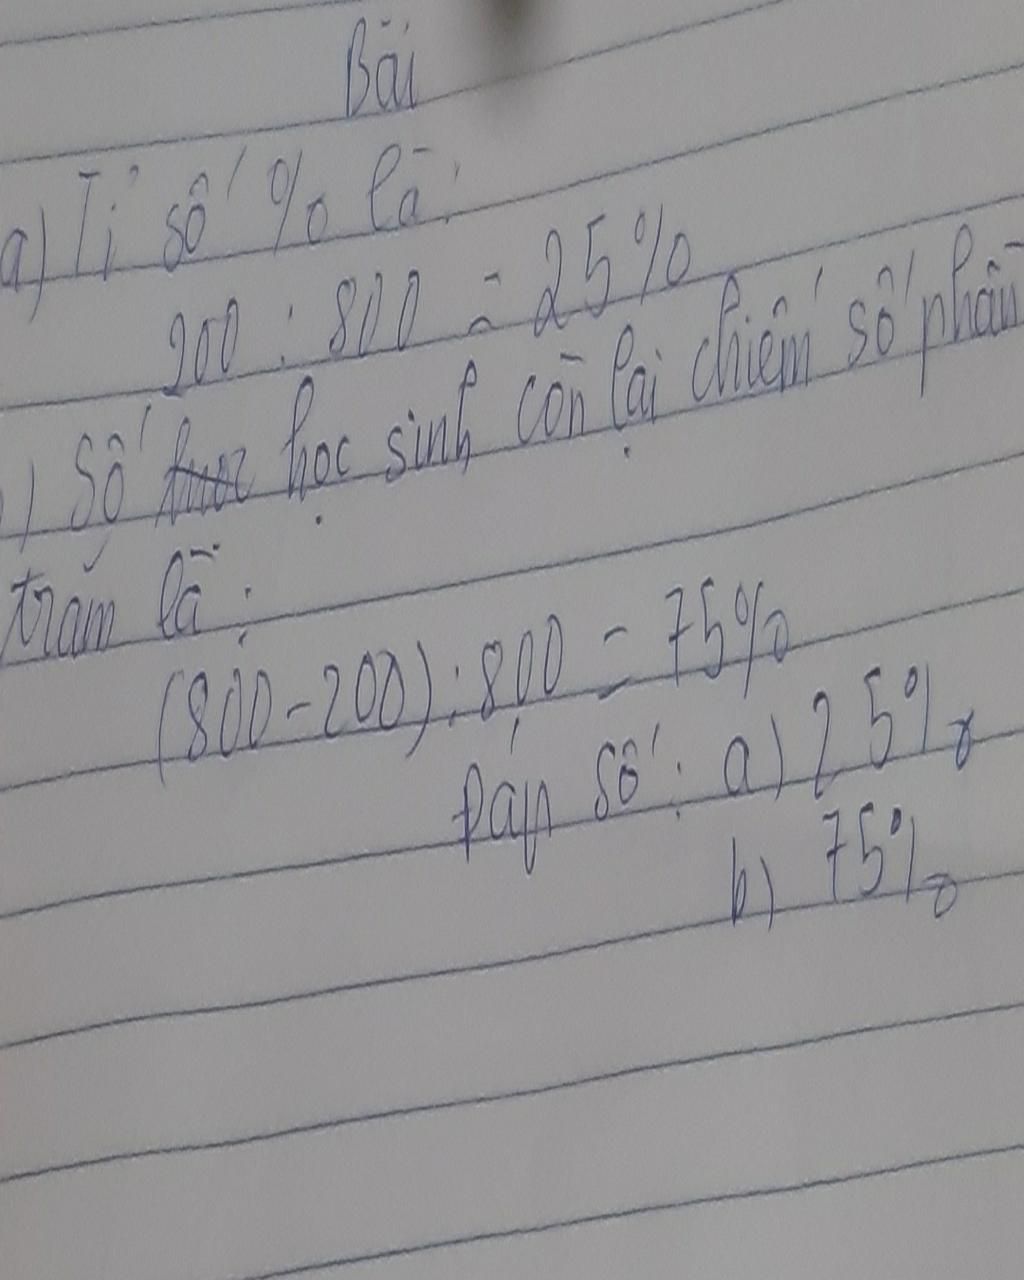 Bài
a) Tỉ số % là:
200 : 800 = 25%
) Số học sinh còn lại chiếm số phần
trăm là:
(800-200):800 = 75%
Đáp số: a) 25%
b) 75%